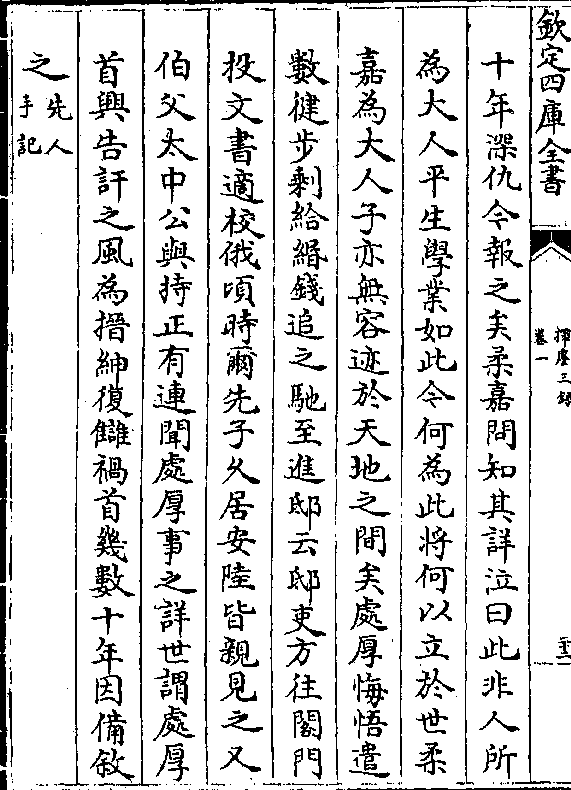 欽定四庫全書
揮麈三錄
卷一
十年深仇今報之矣柔嘉問知其詳泣曰此非人所
為大人平生學業如此今何為此將何以立於世柔
嘉為大人子亦無容迹於天地之間矣處厚悔悟遣
數健步剰給緡錢追之馳至進邸云邸吏方往閤門
投文書適校俄頃時爾先子久居安陸皆親見之又
伯父太中公與持正有連聞處厚事之詳世謂處厚
首興告訐之風為搢紳復讎禍首幾數十年因備敘
之先人
手記